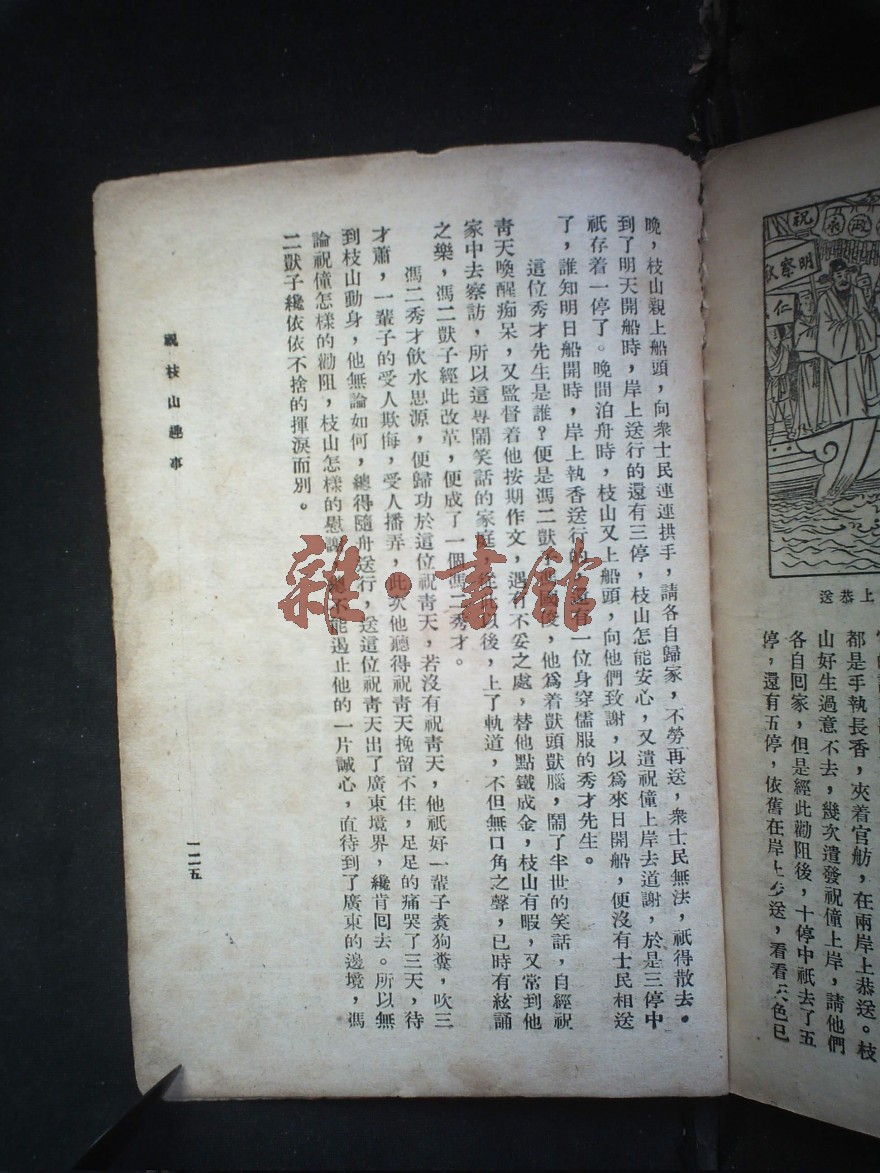 上恭送
都是手執長香，夾着官舫，在兩岸上恭送。枝
山好生過意不去，幾次遣發祝僮上岸，請他們
各自回家，但是經此勸阻後，十停中祇去了五
停，還有五停，依舊在岸上步送，看看天色已
晚，枝山親上船頭，向衆士民連連拱手，請各自歸家，不勞再送，衆士民無法，祇得散去。
到了明天開船時，岸上送行的還有三停，枝山怎能安心，又遣祝僮上岸去道謝，於是三停中
祇存着一停了。晚間泊舟時，枝山又上船頭，向他們致謝，以爲來日開船，便沒有士民相送
了，誰知明日船開時，岸上執香送行的，還有一位身穿儒服的秀才先生。
這位秀才先生是誰？便是馮二獃子，他爲着獃頭獃腦，鬧了半世的笑話，自經祝
靑天喚醒痴呆，又監督着他按期作文，遇有不妥之處，替他點鐵成金，枝山有暇，又常到他
家中去察訪，所以這專鬧笑話的家庭，從此以後，上了軌道，不但無口角之聲，已時有絃誦
之樂，馮二獃子經此改革，便成了一個馮二秀才。
馮二秀才飲水思源，便歸功於這位祝靑天，若沒有祝靑天，他祇好一輩子煑狗糞，吹三
才蕭，一輩子的受人欺侮，受人播弄，此次他聽得祝靑天挽留不住，足足的痛哭了三天，待
到枝山動身，他無論如何，總得隨舟送行，送這位祝靑天出了廣東境界，纔肯回去。所以無
論祝僮怎樣的勸阻，枝山怎樣的慰謝，不能遏止他的一片誠心，直待到了廣東的邊境，馮
二獃子纔依依不捨的揮淚而別。
祝枝山趣事
一二五
祝
政
明察
仁
雜·書館